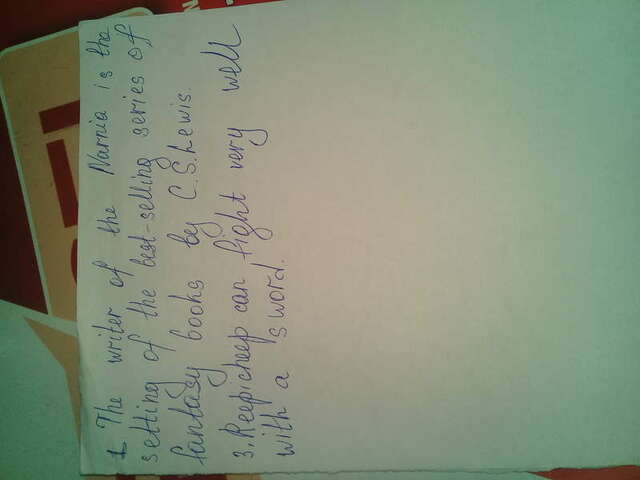 1 The writer of the Narnia is the
setting of the best-selling series of
fantasy books by C.S.Lewis.
3. Reepicheep can fight very well
with a sword.